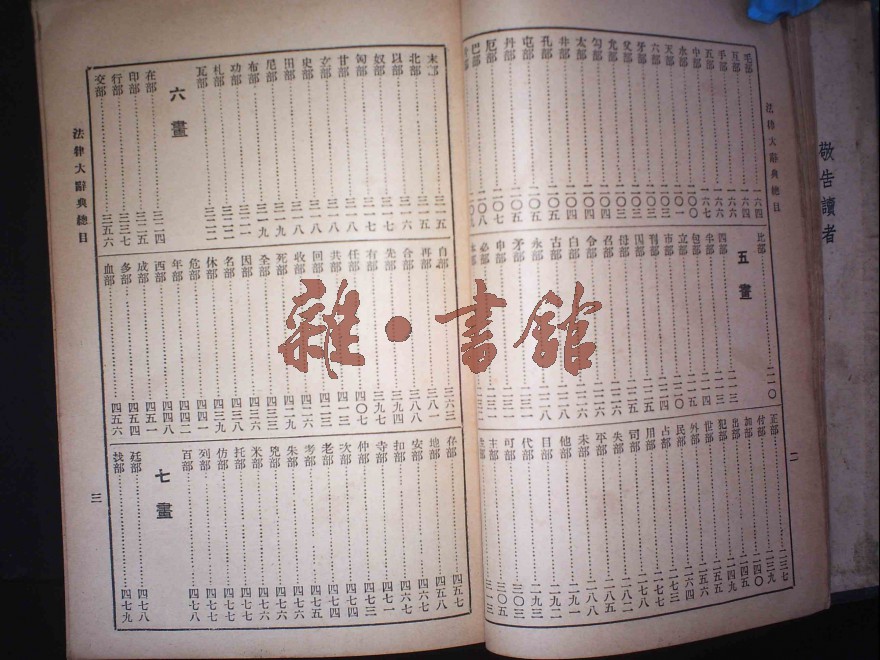 敬告讀者
法律大辭典總目
毛部 一六四
互部 一六四
手部
五部
中部
永部
天部
六部
牙部
父部
允部
勾部
太部
井部
孔部
屯部
丹部
厄部
巴部
比部 二一〇
五畫
四部 二一三
半部 二一四
包部 二一五
立部 二二〇
市部 二二四
刊部 二二五
囚部 二二五
母部 二二六
召部 二二六
令部 二二六
白部 二二八
古部 二二八
永部 二三一
矛部 二三一
申部 二三一
必部 二三二
正部 二三七
付部 二三九
加部 二四〇
出部 二四九
犯部 二五六
世部 二五六
外部 二六六
民部 二七三
占部 二七八
用部 二七八
司部 二八二
失部 二八八
平部 二八八
未部 二九一
他部 二九一
目部 二九三
代部
可部 三〇二
主部 三〇五
二
雜·書館
末部 三一五
北部 三一五
以部 三一六
奴部 三一七
匈部 三一七
甘部 三一八
玄部 三一八
史部 三一八
田部 三一九
尼部 三一九
布部 三一九
功部 三二一
札部 三二二
瓦部 三二二
六畫
在部 三二四
印部 三二五
行部 三三七
交部 三五六
自部 三六三
再部 三八一
合部 三八八
先部 三九四
有部 三九七
任部 四〇七
共部 四一三
回部 四二三
收部 四二六
死部 四二九
全部 四三三
因部 四三六
名部 四三八
休部 四三九
危部 四四一
年部 四四二
西部 四四八
成部 四五一
多部 四五四
血部 四五六
存部 四五七
地部 四五八
安部 四六七
扣部 四六七
寺部 四七一
仲部 四七三
次部 四七四
老部 四七四
考部 四七五
朱部 四七五
兇部 四七六
米部 四七六
托部 四七六
仿部 四七七
列部 四七七
百部 四七八
七畫
廷部 四七八
找部 四七九
法律大辭典總目
三